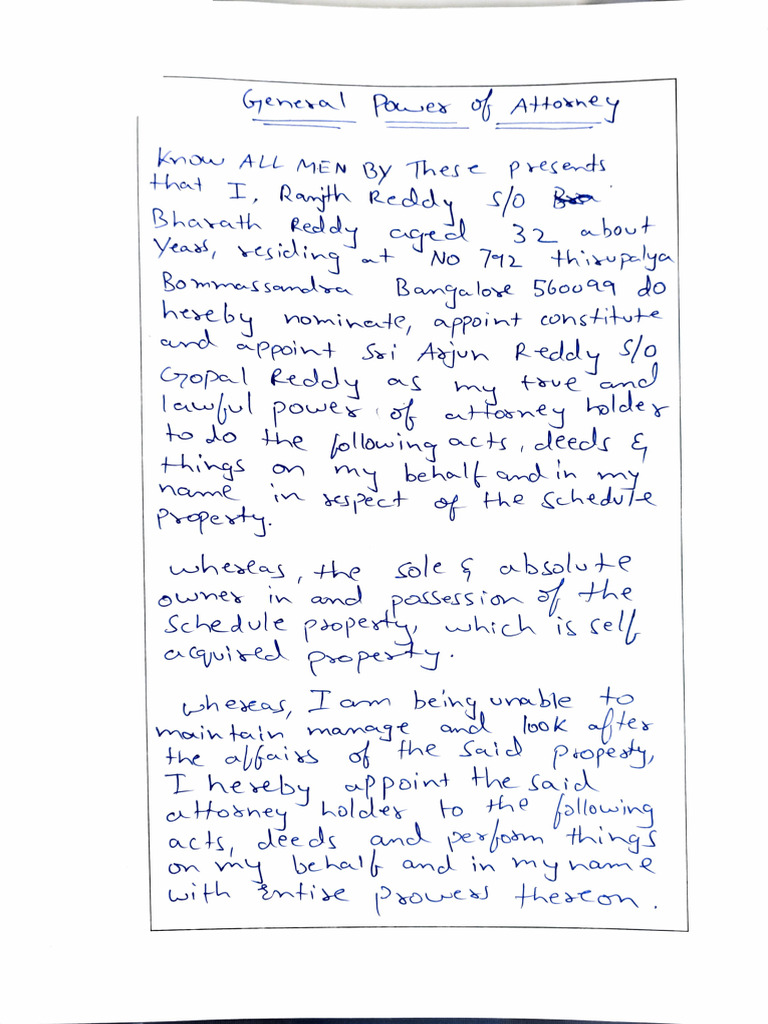 General Power of Attorney
Know ALL MEN BY These presents
that I, Ranjth Reddy S/O
Bharath Reddy aged 32 about
Years, residing at NO 792 thirupalya
Bommassandra Bangalore 560099 do
hereby nominate, appoint constitute
and appoint Sri Arjun Reddy S/O
Gopal Reddy as my true and
lawful power of attorney holder
to do the following acts, deeds &
things on my behalf and in my
name in respect of the Schedule
property.
whereas, the sole & absolute
owner in and possession of the
Schedule property, which is self
acquired property.
whereas, I am being unable to
maintain manage and look after
the affairs of the said property,
I hereby appoint the said
attorney holder to the following
acts, deeds and perform things
on my behalf and in my name
with Entire prowers thereon.